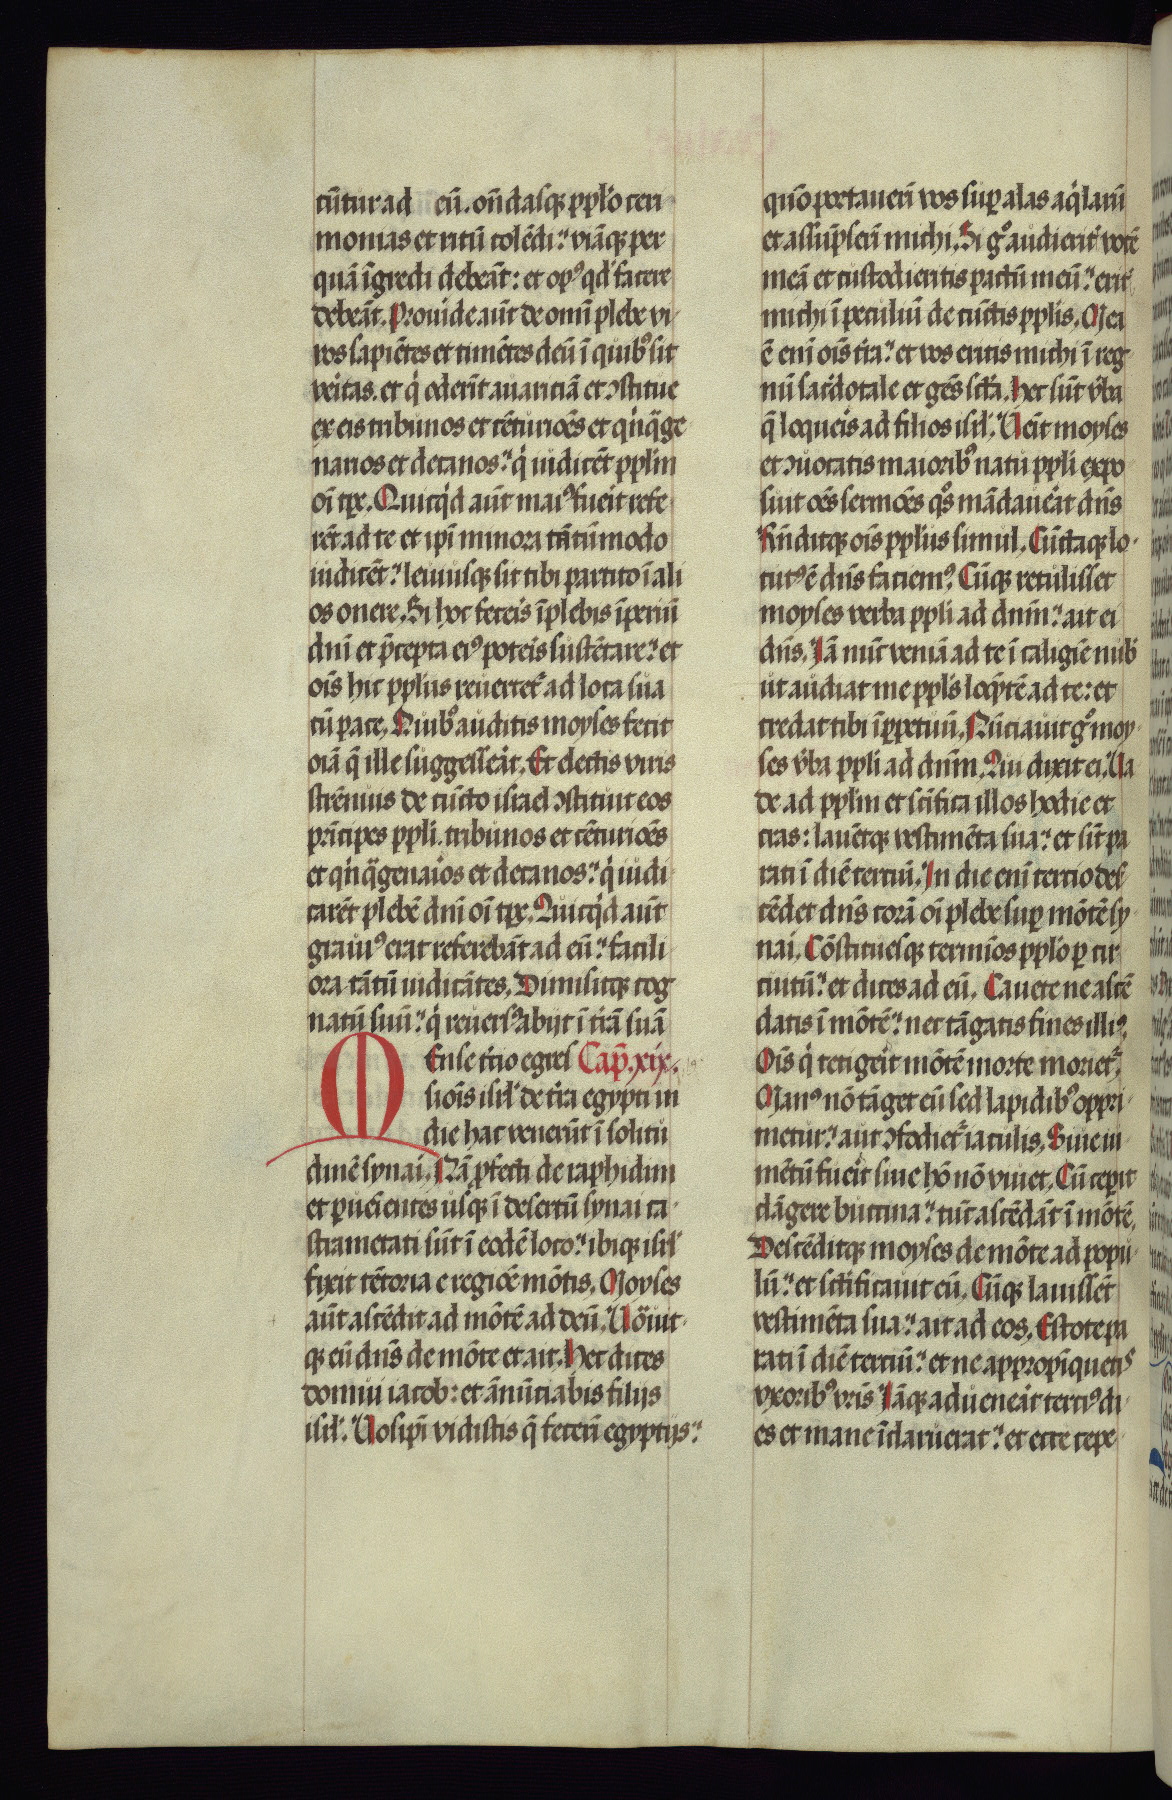 cūtur ad eū. ondasq; pplo ceri
monias et ritū colēdi: viāq; per
quā īgredi debeāt: et opꝰ qd facere
debeāt. Prouide aūt de omī plebe vi
ros sapiētes et timētes deū ī quibꝰ sit
veritas. et q̇ oderīt auariciā et ꝯstitue
ex eis tribunos et cēturiōes et q̇nq̄ge
narios et decanos: q̇ iudicēt pplm
oī tꝑe. Quicq̇d aūt maiꝰ fueit refe
rēt ad te et ip̄i minora tātūmodo
iudicēt: leuiusq; sit tibi partito ī ali
os onere. Si hoc feceis īplebis īperiū
dnī et p̄cepta eiꝰ poteis sustētare: et
oīs hic pplus reuertet ad loca sua
cū pace. Quibꝰ auditis moyses fecit
oīa q̄ ille suggesseāt. Et electis viris
strēnuis de cūcto israel ꝯstituit eos
prīcipes ppli. tribunos et cēturiōes
et q̇nq̄genaios et decanos: q̇ iudi
carēt plebē dnī oī tꝑe. Quicq̇d aūt
grauiꝰ erat referebāt ad eū: facili
ora tātū iudicātes. Dimisitq; cog
natū suū: q̇ reuersꝰ abijt ī trā suā
Ense tcio egres Cap̄. xix.
siōis isrl' de tra egypti in
die hac venerūt ī solitu
dinē synai. Nā pfecti de raphidim
et ꝑueientes usq; ī desertū synai ca
strametati sūt ī eodē loco: ibiq; isrl'
fixit tētoria e regiōe mōtis. Moyses
aūt ascēdit ad mōtē ad deū. Uocuit
q; eū dns de mōte et ait. Hec dices
domui iacob: et ānūciabis filijs
isrl'. Uos ip̄i vidistis q̄ fecerī egyptijs:
quō portauerī vos suꝑ alas aq̇larū
et assūpserī michi. Si gͦ audierit vocē
meā et custodieritis pactū meū: erit
michi ī peculiū de cūctis pplis. Mea
ē enī oīs tra: et vos eritis michi ī reg
nū sacdotale et gēs scta. Hec sūt vba
q̄ loqueis ad filios isrl'. Ueit moyses
et ꝯuocatis maioribꝰ natu ppli expo
suit oēs sermōes qͦs mādaueāt dns
Rnditq; oīs pplus simul. Cūcta q; lo
cutꝰ ē dns faciemꝰ. Cūq; retulisset
moyses verba ppli ad dnm: ait ei
dns. Iā nūc veniā ad te ī caligīe nub
ut audiat me ppls loq̄tē ad te: et
credat tibi īꝑpetuū. Nūciauit gͦ moy
ses vba ppli ad dnm. Qui dixit ei. Ua
de ad pplm et scīfica illos hodie et
cras: lauētq; vestimēta sua: et sīt pa
rati ī diē terciū. In die enī tercio des
cēdet dns corā oī plebe suꝑ mōtē sy
nai. Cōstituesq; termīos pplo ꝑ cir
cuitū: et dices ad eū. Cauete ne ascē
datis ī mōtē: nec tāgatis fines illiꝰ.
Oīs q̇ tetigeit mōtē morte moriet.
Manꝰ nō tāget eū sed lapidibꝰ oppri
metur: aut ꝯfodiet iaculis. Siue iu
mētū fueit siue hō nō viuet. Cū ceperit
clāgere buccina: tūc ascēdāt ī mōtē.
Descēditq; moyses de mōte ad popu
lū: et sctificauit eū. Cūq; lauissēt
vestimēta sua: ait ad eos. Estote pa
rati ī diē terciū: et ne appropīquetis
vxoribꝰ vris Iāq; adueneāt terciꝰ di
es et mane īclaruerat: et ecce cepe